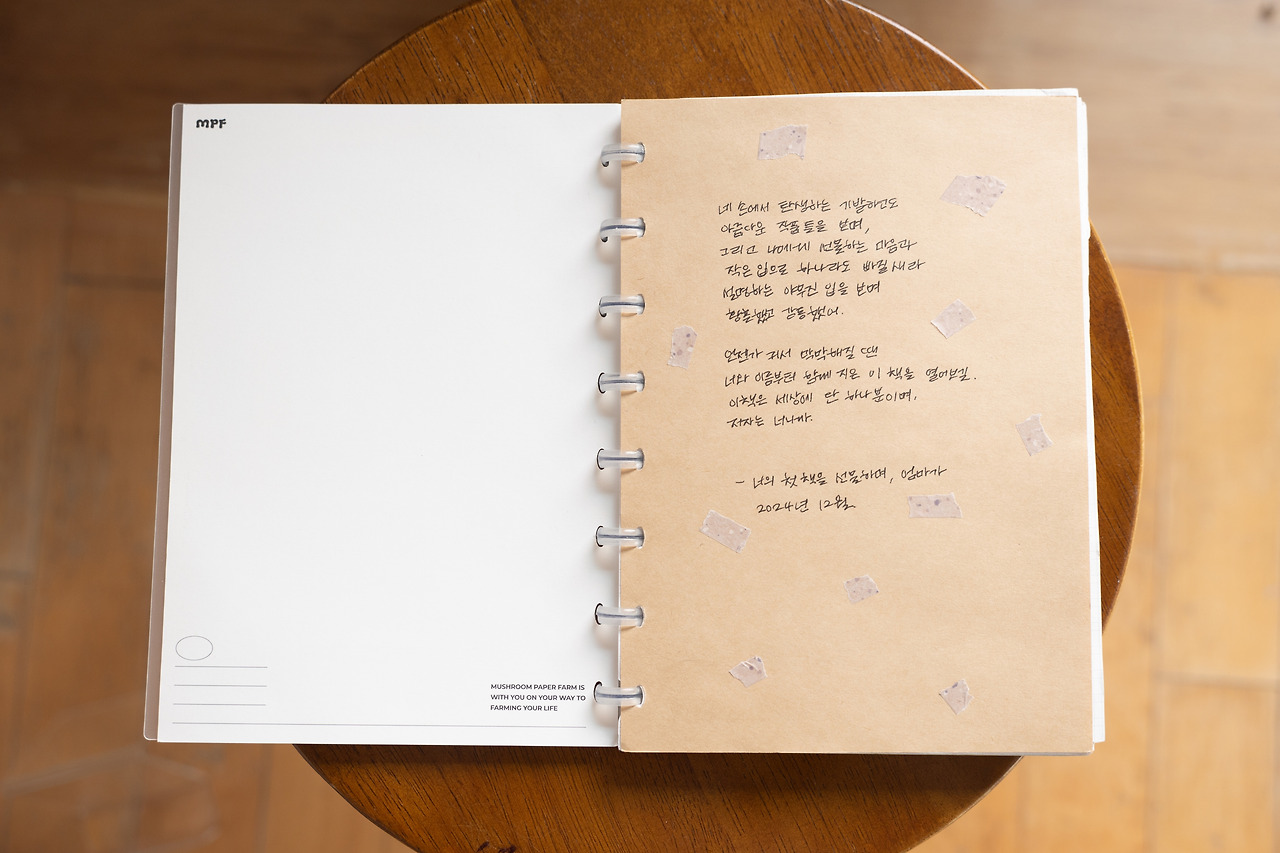 MPF
MUSHROOM PAPER FARM IS
WITH YOU ON YOUR WAY TO
FARMING YOUR LIFE
네 손에서 탄생하는 기발하고도
아름다운 작품들을 보며,
그리고 나에게 선물하는 마음과
작은 입으로 하나라도 빠질새라
설명하는 야무진 입을 보며
황홀했고 감동했어.
언젠가 커서 막막해질 땐
너와 이름부터 함께 지은 이 책을 열어보길.
이 책은 세상에 단 하나뿐이며,
저자는 너니까.
- 너의 첫 책을 선물하며, 엄마가
2024년 12월.